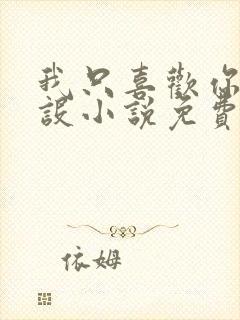 我只喜歡你
設小說免費
依姆